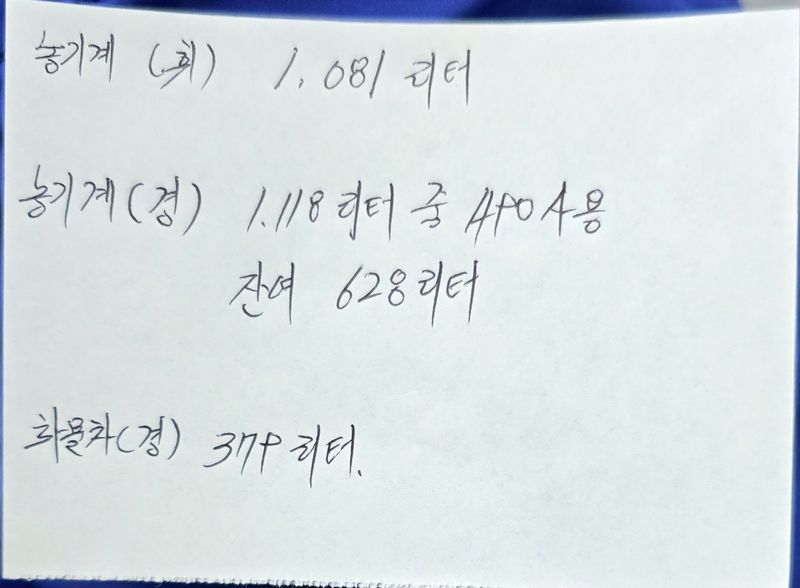 농기계 (휘) 1.081 리터
농기계 (경) 1.118 리터 중 490 사용
잔여 628 리터
화물차 (경) 379 리터.